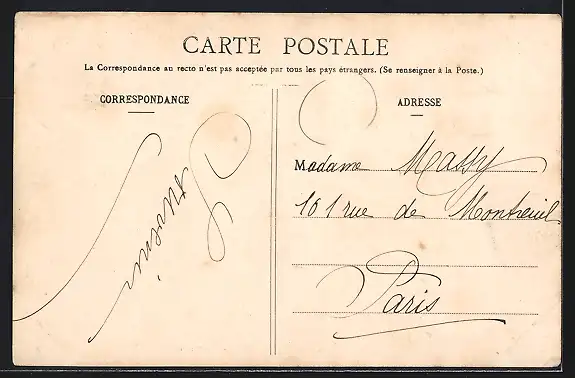 CARTE POSTALE
La Correspondance au recto n'est pas acceptée par tous les pays étrangers. (Se renseigner à la Poste.)
CORRESPONDANCE
ADRESSE
Madame Massy
101 rue de Montreuil
Paris